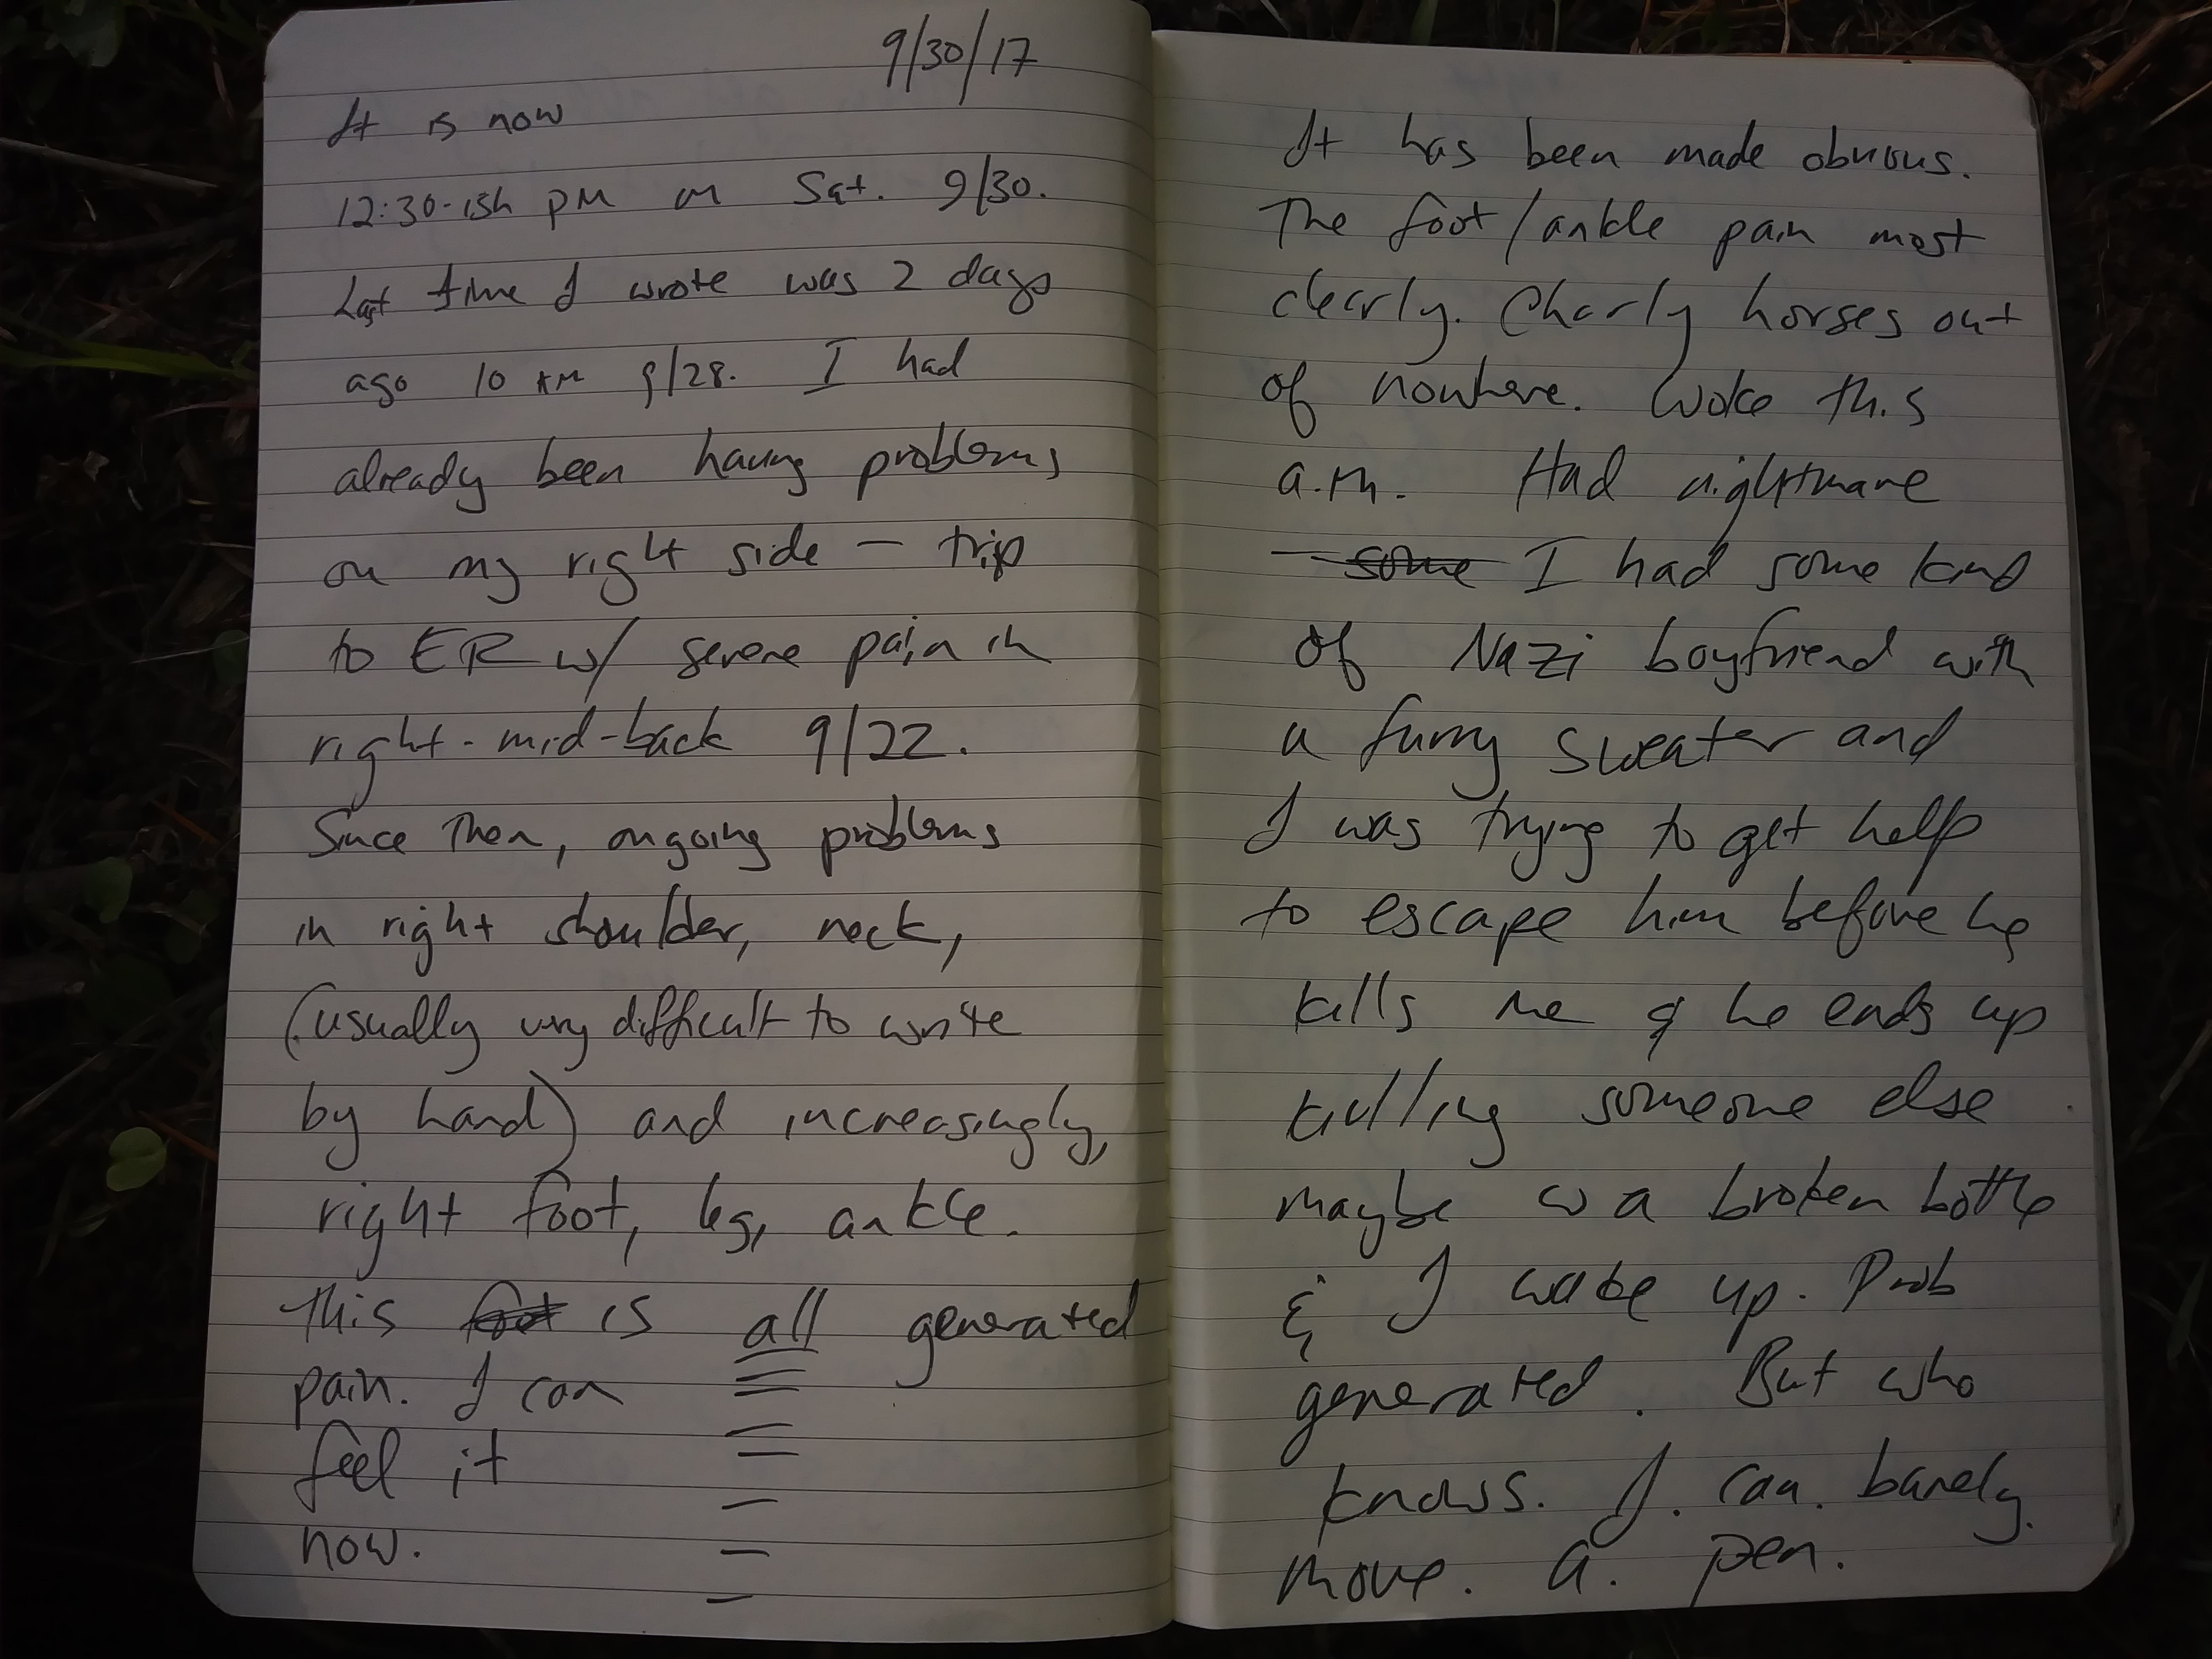 9/30/17
It is now
12:30-ish PM on Sat. 9/30.
Last time I wrote was 2 days
ago 10 AM 9/28. I had
already been having problems
on my right side — trip
to ER w/ severe pain in
right-mid-back 9/22.
Since then, ongoing problems
in right shoulder, neck,
(usually very difficult to write
by hand) and increasingly,
right foot, leg, ankle.
This foot is all generated
pain. I can
feel it
now.
It has been made obvious.
The foot/ankle pain most
clearly. Charly horses out
of nowhere. Woke this
a.m. Had nightmare
— some I had some kind
of Nazi boyfriend with
a furry sweater and
I was trying to get help
to escape him before he
kills me & he ends up
killing someone else
maybe w a broken bottle
& I wake up. Prob
generated. But who
knows. I. can. barely.
move. a. pen.